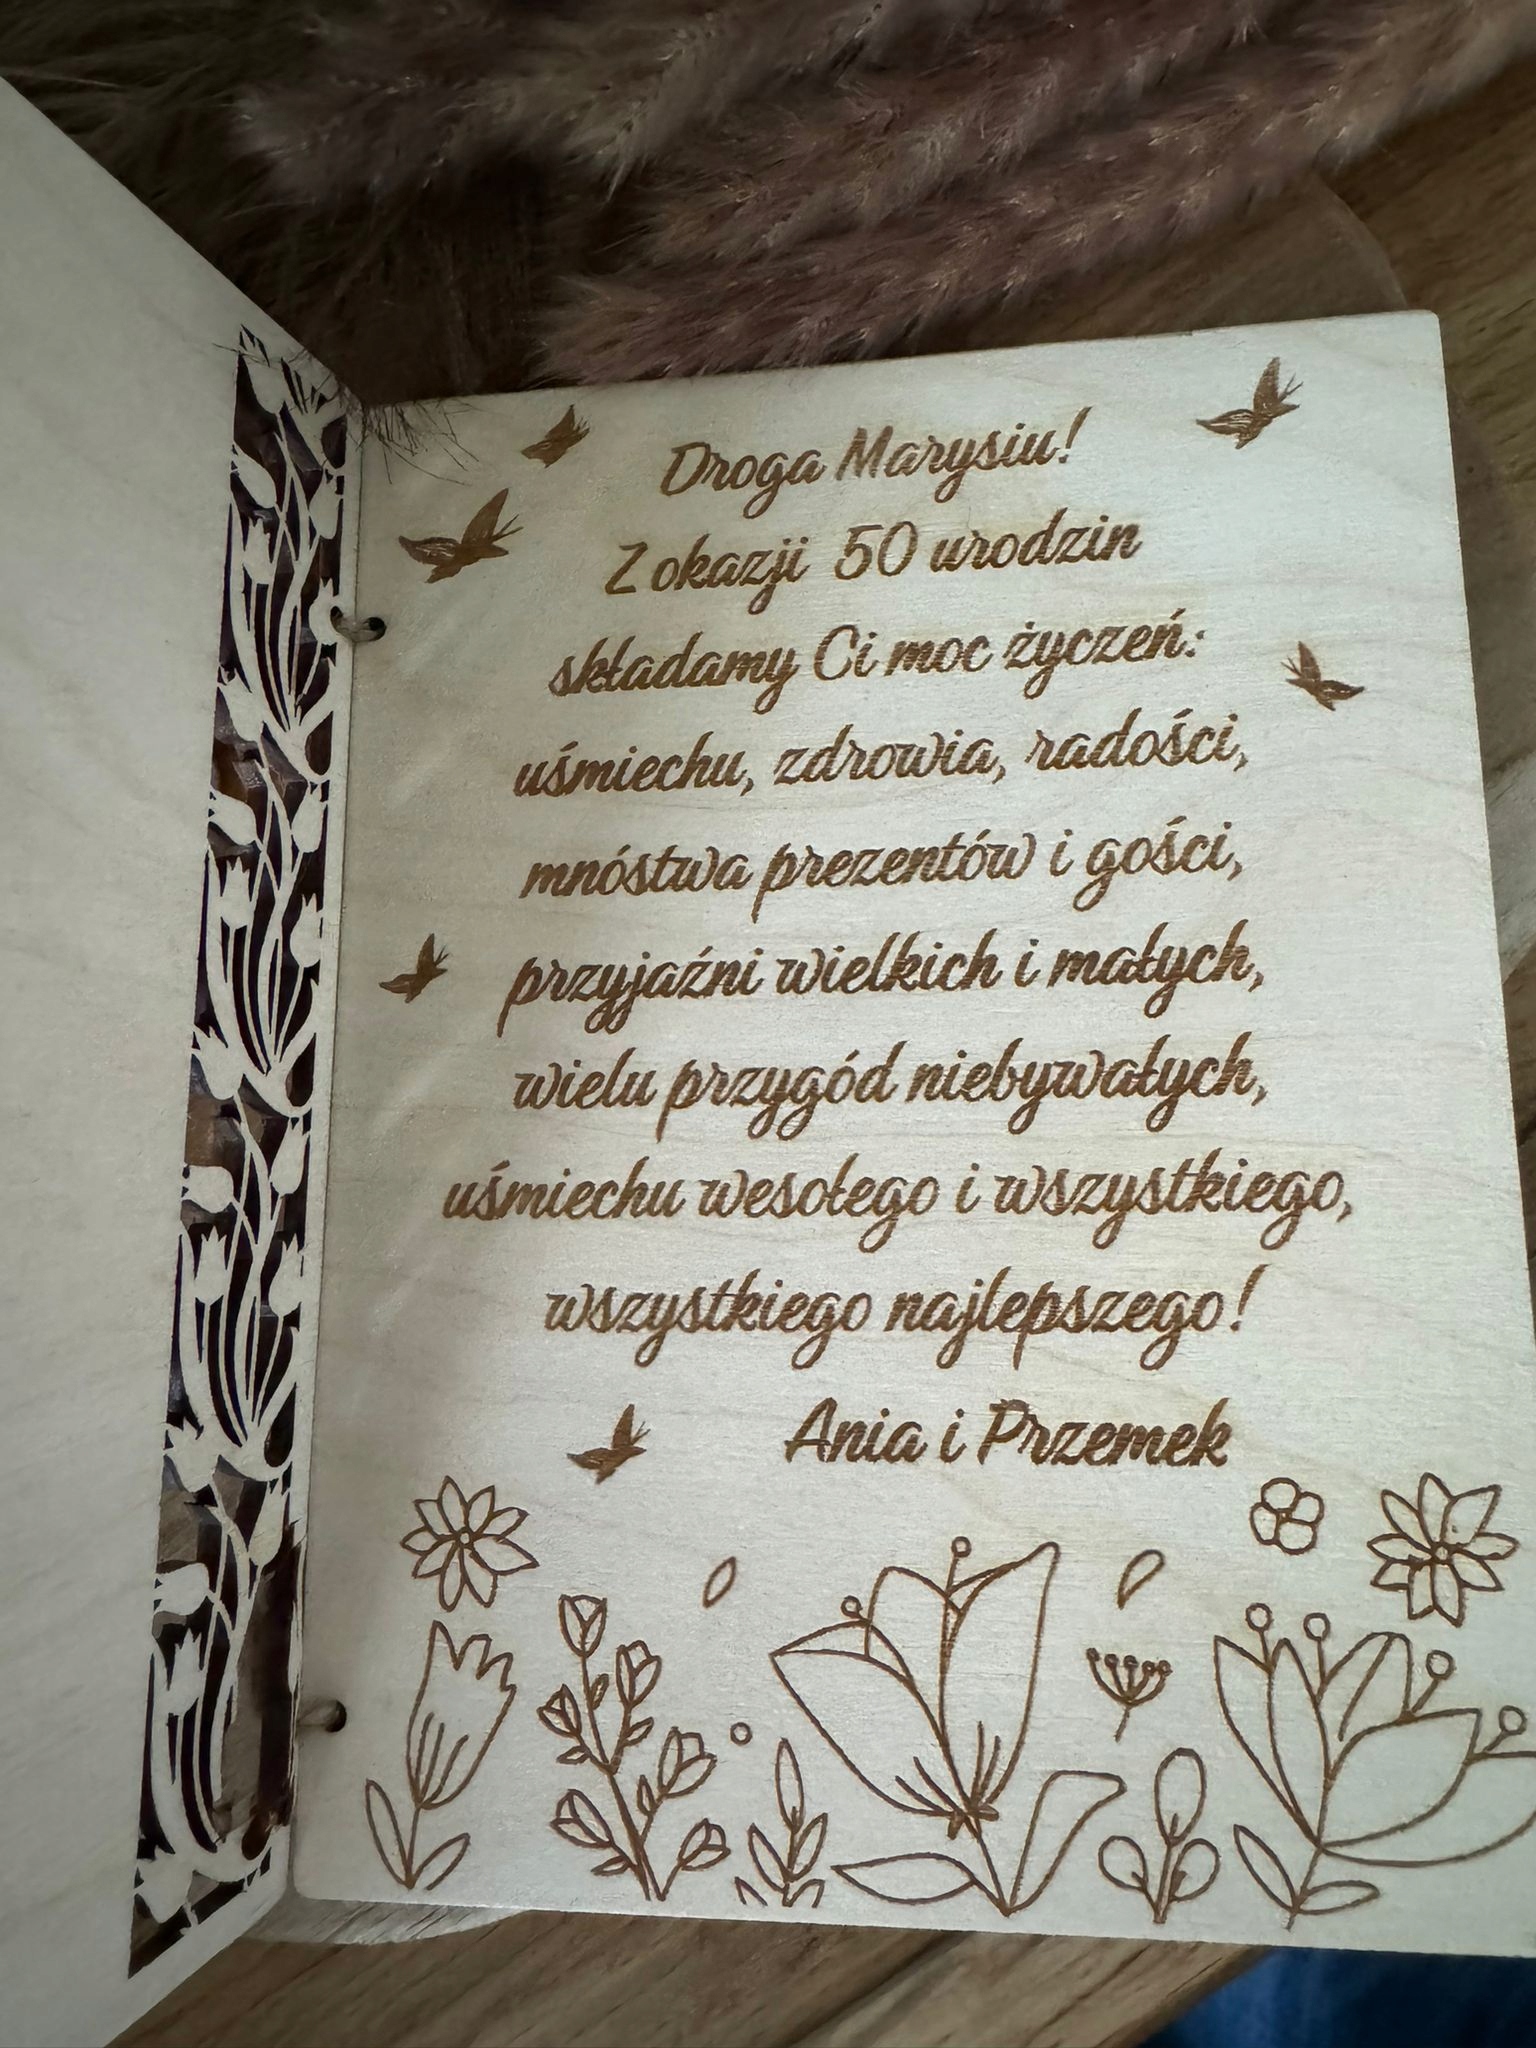 Droga Marysiu!
Z okazji 50 urodzin
składamy Ci moc życzeń:
uśmiechu, zdrowia, radości,
mnóstwa prezentów i gości,
przyjaźni wielkich i małych,
wielu przygód niebywałych,
uśmiechu wesołego i wszystkiego,
wszystkiego najlepszego!
Ania i Przemek